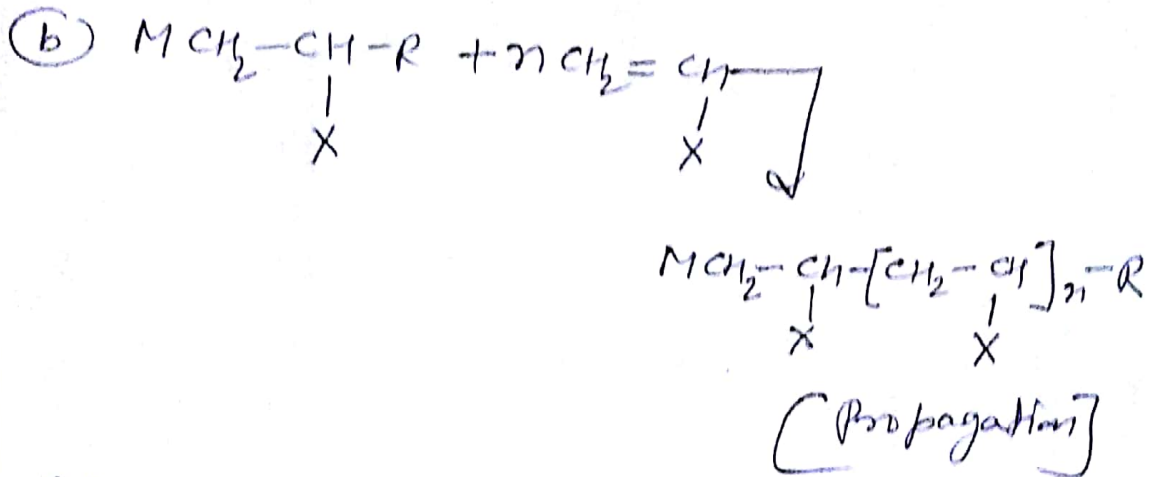 (b) M CH₂—CH—R + n CH₂ = CH
X X
MCH₂—CH—[CH₂—CH]ₙ—R
X X
[Propagation]